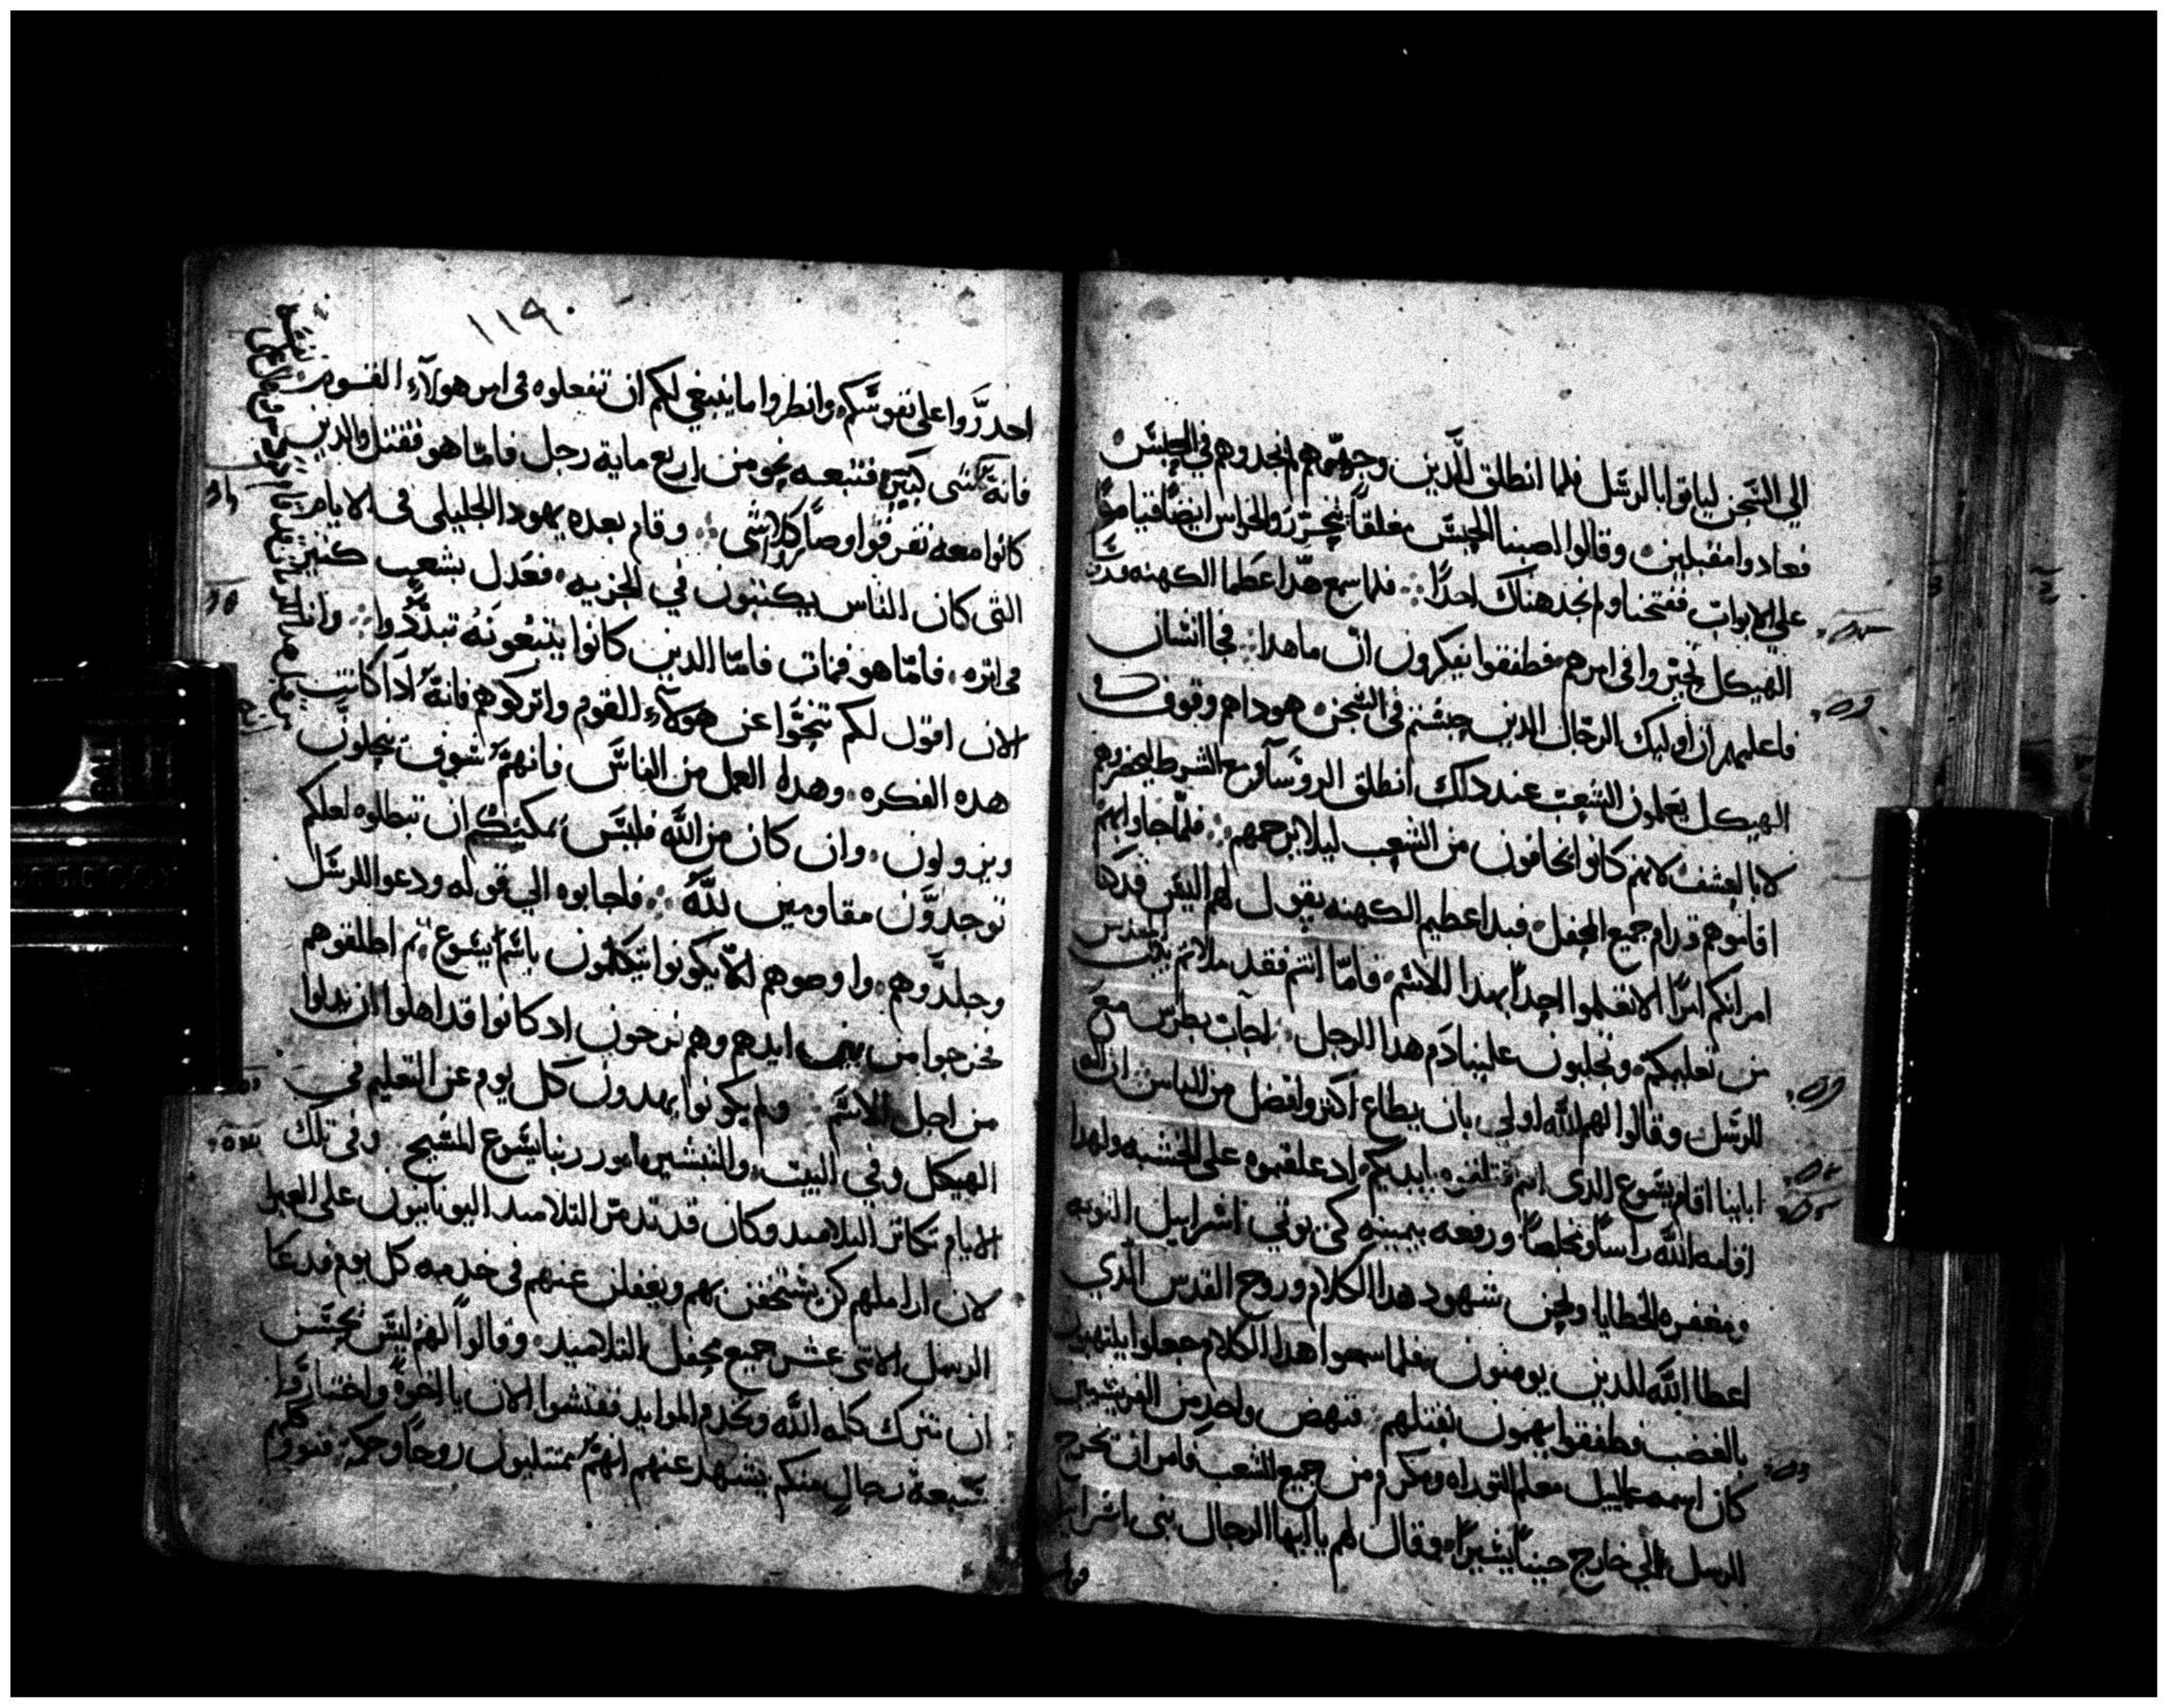 الي السجن لياتوا بالرسل فلما انطلق الدين وجهوهم لم يجدوهم في الحبس
فعادوا مقبلين وقالوا اصبنا الحبس مغلقا بتحرز والحراس ايضا قياما
علي الابواب ففتحنا ولم نجد هناك احدا فلما سمع هدا عظما الكهنه
الهيكل تحيروا في امرهم فطفقوا يفكرون ان ما هدا فجا انسان
فاعلمهم ان اوليك الرجال الدين حبستم في السجن هوداهم وقوف في
الهيكل يعلمون الشعب عند دلك انطلق الروسا مع الشرط ليحضروهم
لا بالعسف لانهم كانوا يخافون من الشعب ليلا يرجمهم فلما جاوا بهم
اقاموهم قدام جميع المحفل فبدا عظيم الكهنه يقول لهم اليس قد كنا
امرناكم امرا الا تعلموا احدا بهدا الاسم فاما انتم فقد ملاتم بيت المقدس
من تعليمكم وتجلبون علينا دم هدا الرجل اجاب بطرس مع
الرسل وقالوا لهم الله اولي بان يطاع اكثر وافضل من الناس ان اله
اباينا اقام يسوع الدي انتم قتلتموه بايديكم اد علقتموه علي الخشبه ولهدا
اقامه الله راسا ومخلصا ورفعه بيمينه كي يوتي اسراييل التوبه
ومغفره الخطايا ونحن شهود هدا الكلام وروح القدس الدي
اعطا الله للدين يومنون به فلما سمعوا هدا الكلام جعلوا يلتهبون
بالغضب وطفقوا يهمون بقتلهم فنهض واحد من الفريسيين
كان اسمه عمالييل معلم التوراه ومكرم من جميع الشعب فامر ان تخرج
الرسل الي خارج حينا يسيرا وقال لهم يا ايها الرجال بني اسراييل
١١٩
احدروا علي نفوسكم وانظروا ما ينبغي لكم ان تفعلوه في امر هولاء القوم
فانه شي كبير فتبعه نحو من اربع مايه رجل فاما هو فقتل والدين
كانوا معه تفرقوا وصاروا كلاشي وقام بعده يهودا الجليلي في الايام
التي كان الناس يكتبون في الجزيه فعدل بشعب كثير
في اثره فاما هو فمات فاما الدين كانوا يتبعونه تبددوا وانا
الان اقول لكم تنحوا عن هولاء القوم واتركوهم فانه ادا كانت
هده الفكره وهدا العمل من الناس فانهم سوف ينحلون
ويزولون وان كان من الله فليس يمكنكم ان تبطلوه لعلكم
توجدون مقاومين لله فاجابوه الي قوله ودعوا الرسل
وجلدوهم واوصوهم الا يكونوا يتكلمون باسم يسوع ثم اطلقوهم
فخرجوا من بين ايديهم وهم فرحون اد كانوا قد اهلوا ان يدلوا
من اجل الاسم ولم يكونوا يهدون كل يوم عن التعليم في
الهيكل وفي البيت والتبشير بامور ربنا يسوع المسيح وفي تلك
الايام تكاثر التلاميد وكان قد تدمر التلاميد اليونانيون علي العبرا
لان اراملهم كن يستخفن بهم ويغفلن عنهم في خدمه كل يوم فدعا
الرسل الاثني عشر جميع محفل التلاميد وقالوا لهم ليس يحسن
ان نترك كلمه الله ونخدم الموايد ففتشوا الان يا اخوه واختاروا
سبعة رجال منكم يشهد عنهم انهم ممتليون روحا وحكمة